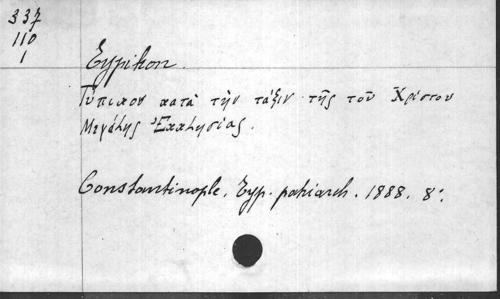 337
110
1
Typikon.
Τύπικον κατὰ τὴν τάξιν τῆς τοῦ Χρίστου
Μεγάλης Ἐκκλησίας.
Constantinople, Typ. patriarch. 1888. 8°.